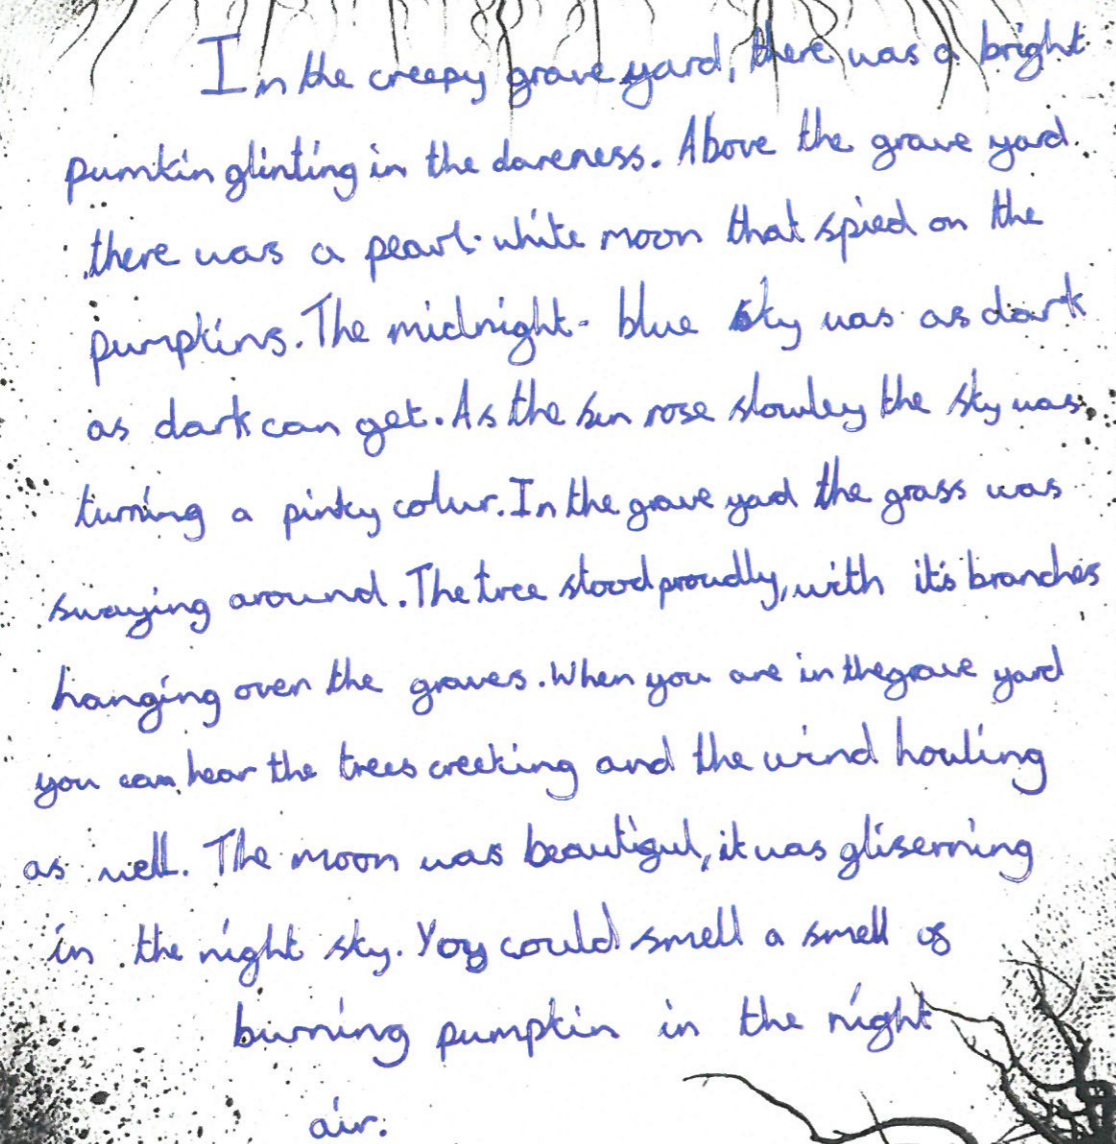 In the creepy grave yard, there was a bright
pumkin glinting in the dareness. Above the grave yard
there was a pearl-white moon that spied on the
pumpkins. The midnight-blue sky was as dark
as dark can get. As the sun rose slowley the sky was
turning a pinky colur. In the grave yard the grass was
swaying around. The tree stood proudly, with it's branches
hanging over the graves. When you are in the grave yard
you can hear the trees creeking and the wind howling
as well. The moon was beautigul, it was gliserning
in the night sky. You could smell a smell of
burning pumpkin in the night
air.